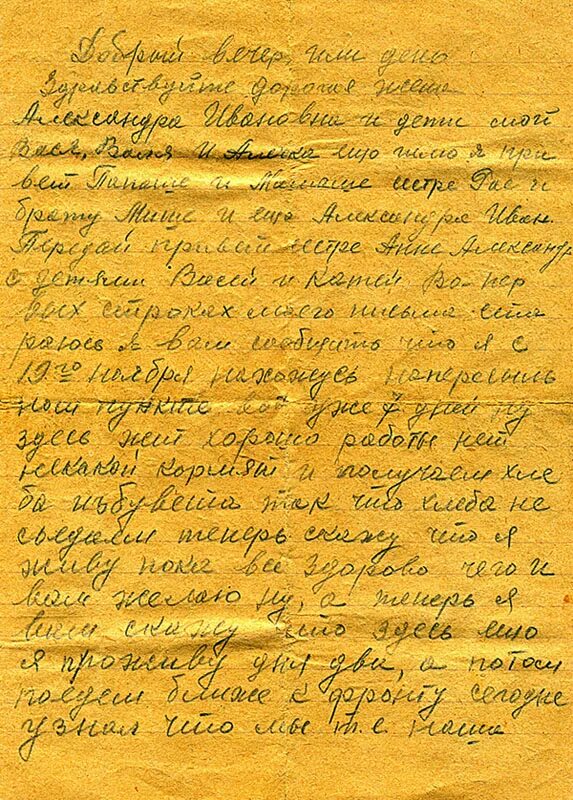 Добрый вечер, или день
Здравствуйте дорогая жена
Александра Ивановна и дети мои
Вася, Ваня и Алечка ещо шлю я при
вет Папаше и Мамаше сестре Рае и
брату Мише и ещо Александра Иван.
Передай привет сестре Анне Александр
с детями Васей и Катей Во пер
вых строках моего письма ста
раюсь я вам сообщить что я с
19го ноября нахожусь напересыль
ном пункте вот уже 7 дней ну
здесь жит хорошо работы нет
некакой кормят и получаем хле
ба так что хлеба не
съедаем теперь скажу что я
живу пока все здорово чего и
вам желаю ну, а теперь я
вам скажу что здесь ещо
я проживу дня два, а потом
поедем ближе к фронту сегодне
узнал что мы т.е. наша